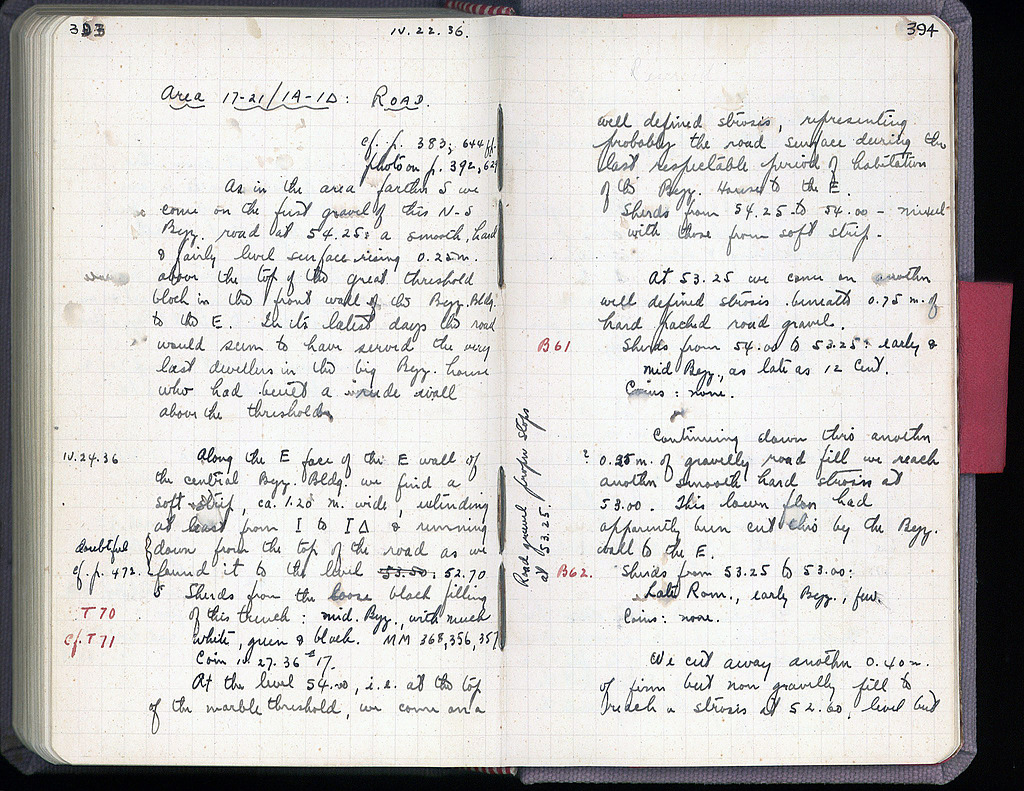 393
IV. 22. 36.
Area 17-21/IA-IΔ: ROAD.
cf. p. 383, 644 ff.
photo on p. 392, 629
As in the area farther S we
come on the first gravel of this N-S
Byz. road at 54.25: a smooth, hard
& fairly level surface rising 0.25 m.
above the top of the great threshold
block in the front wall of the Byz. Bldg.
to the E. In its latest days the road
would seem to have served the very
last dwellers in the big Byz. house
who had built a crude wall
above the threshold.
IV. 24. 36
Along the E face of the E wall of
the central Byz. Bldg. we find a
soft strip, ca. 1.20 m. wide, extending
at least from I to IΔ & running
doubtful
down from the top of the road as we
cf. p. 472.
found it to the level 53.50. 52.70
Sherds from the loose black filling
T 70
of this trench: mid. Byz., with much
cf. T 71
white, green & black. MM 368, 356, 357
Coin IV. 27. 36 #17.
At the level 54.00, i.e. at the top
of the marble threshold, we come on a
Road gravel proper stops
at 53.25.
394
well defined strosis, representing
probably the road surface during the
last respectable period of habitation
of the Byz. House to the E.
Sherds from 54.25 to 54.00 - mixed
with those from soft strip.
At 53.25 we come on another
well defined strosis beneath 0.75 m. of
hard packed road gravel.
B61
Sherds from 54.00 to 53.25: early &
mid Byz., as late as 12 Cent.
Coins: none.
Continuing down thro another
? 0.25 m. of gravelly road fill we reach
another smooth hard strosis at
53.00. This lower floor had
apparently been cut thro by the Byz.
wall to the E.
B62.
Sherds from 53.25 to 53.00:
Late Rom., early Byz., few.
Coins: none.
We cut away another 0.40 m.
of firm but non gravelly fill to
reach a strosis at 52.60, level but